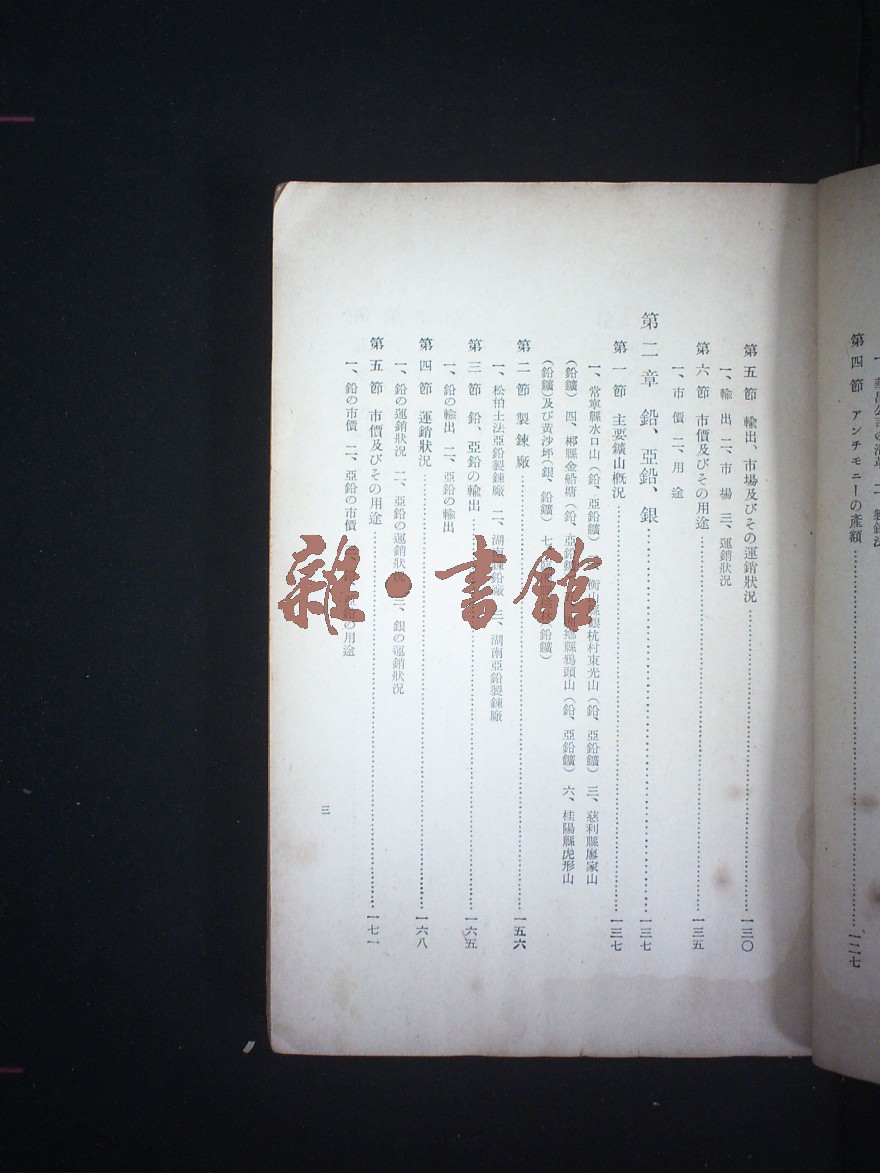 一、蓺昌公司の沿革 二、製鍊法
第四節 アンチモニーの產額 一二七
第五節 輸出、市場及びその運銷狀況 一三〇
一、輸出 二、市場 三、運銷狀況
第六節 市價及びその用途 一三五
一、市價 二、用途
第二章 鉛、亞鉛、銀 一三七
第一節 主要鑛山槪況 一三七
一、常寧縣水口山(鉛、亞鉛鑛) 衡山縣 杭村東光山(鉛、亞鉛鑛) 三、慈利縣廖家山
(鉛鑛) 四、郴縣金船塘(鉛、亞鉛鑛 縣鴉頭山(鉛、亞鉛鑛) 六、桂陽縣虎形山
(鉛鑛)及び黃沙坪(銀、鉛鑛) 七、 鉛鑛)
第二節 製鍊廠 一五六
一、松柏土法亞鉛製鍊廠 二、湖南鍊鉛廠 三、湖南亞鉛製鍊廠
第三節 鉛、亞鉛の輸出 一六五
一、鉛の輸出 二、亞鉛の輸出
第四節 運銷狀況 一六八
一、鉛の運銷狀況 二、亞鉛の運銷狀況 三、銀の運銷狀況
第五節 市價及びその用途 一七一
一、鉛の市價 二、亞鉛の市價 の用途
三
雜·書館